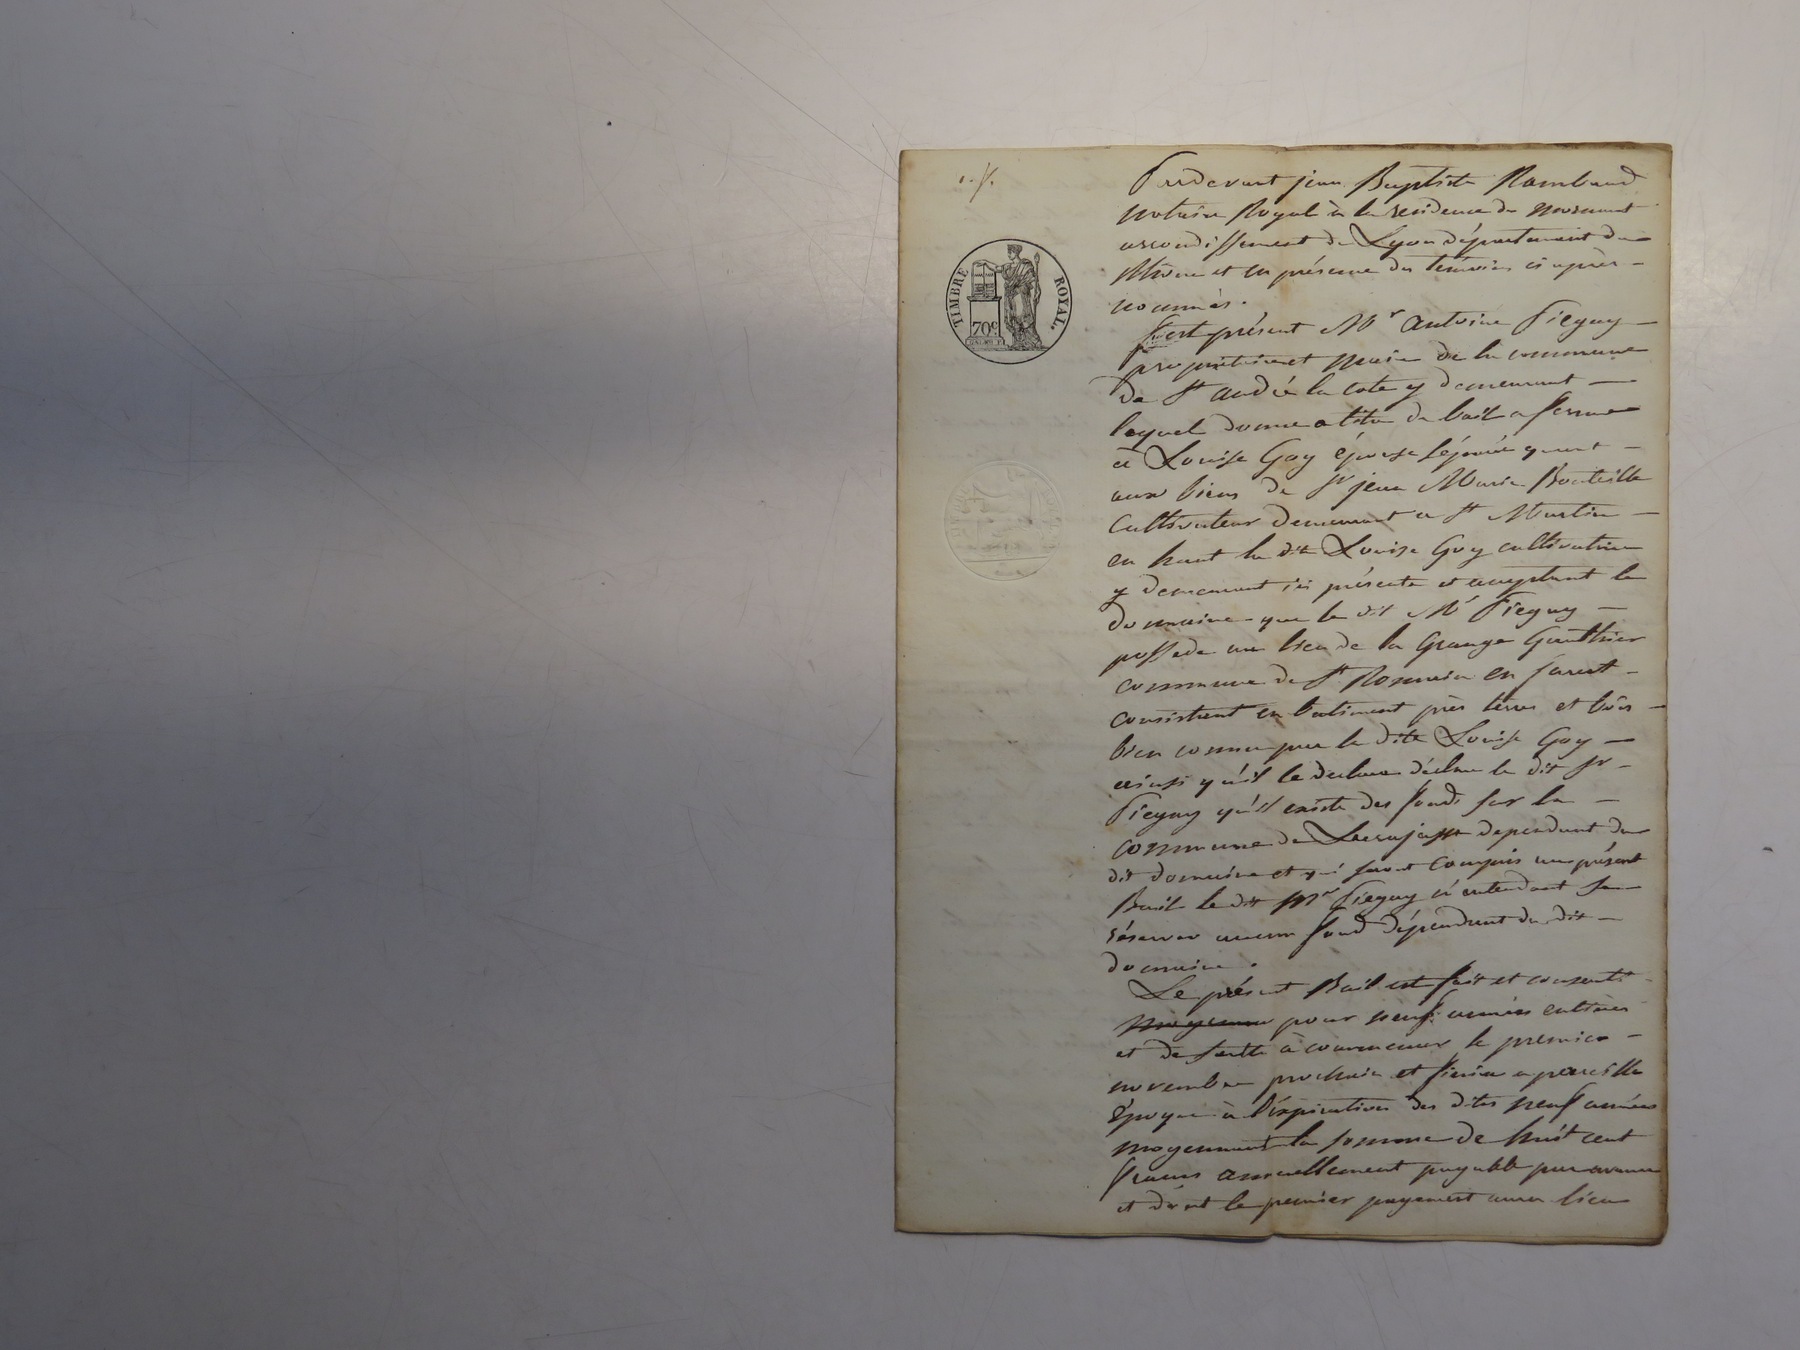 1. f.
TIMBRE ROYAL.
70c
Pardevant jean Baptiste Rambaud
notaire Royal à la residence de mornant
arrondissement de Lyon département du
Rhone et en présence des témoins ci après
nommés.
fut présent Mr antoine Piegay
propriétaire et maire de la commune
de St andré la cote y demeurant
lequel donne a titre de bail a ferme
à Louise Goy épouse séparée quant
aux biens de Sr jean Marie Bouteille
cultivateur demeurant a St Martin
en haut la dite Louise Goy cultivatrice
y demeurant ici présente et acceptant le
domaine que le dit Mr Piegay
possede au lieu de la Grange Gauthier
commune de St Romain en jarest
consistant en batiment près terres et bois
bien connu par la dite Louise Goy
ainsi qu'il le declare déclare le dit Sr
Piegay qu'il existe des fonds sur la
commune de dependant du
dit domaine et qui seront compris au présent
Bail le dit Mr Piegay n'entendant se
réserver aucun fond dépendant du dit
domaine.
Le présent Bail est fait et consenti
moyennant pour neuf années entières
et de suite à commencer le premier
novembre prochain et finira a pareille
époque à l'expiration des dites neuf années
moyennant la somme de huit cent
francs annuellement payable par avance
et dont le premier payement aura lieu